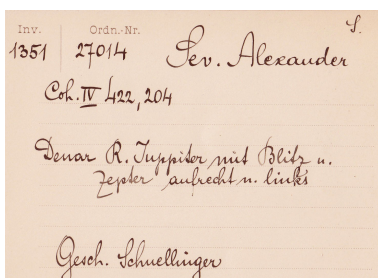 Inv. Ordn.-Nr. S.
1351 27014 Sev. Alexander
Coh. IV 422, 204
Denar R. Juppiter mit Blitz u.
Zepter aufrecht n. links
Gesch. Schnellinger